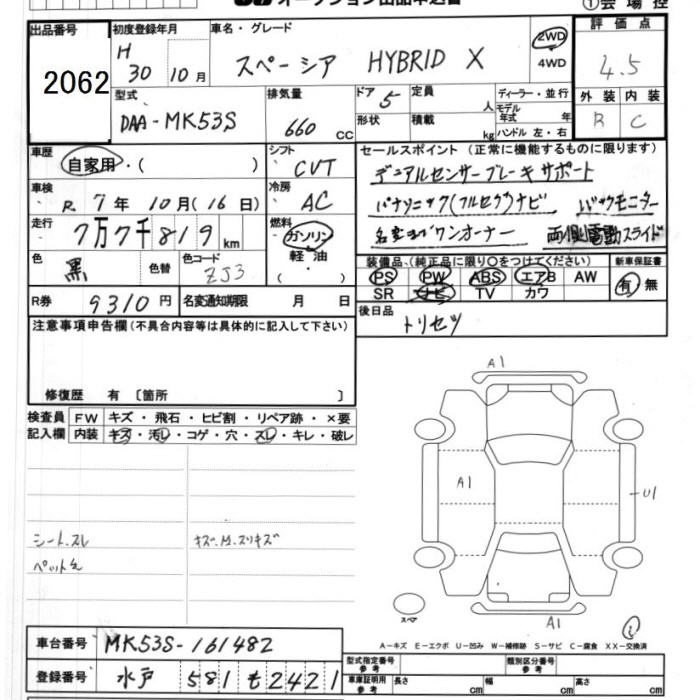 オークション出品申込書
①会場控
出品番号
2062
初度登録年月
H 30 10 月
車名・グレード
スペーシア HYBRID X
2WD
4WD
評価点
4.5
型式
DAA-MK53S
排気量
660 CC
ドア 5
定員 人
形状
積載 kg
ディーラー・並行
モデル年式 年
ハンドル 左・右
外装 内装
B C
車歴
自家用・( )
シフト
CVT
車検
R 7 年 10 月 ( 16 日)
冷房
AC
走行
7万7千819 km
燃料
ガソリン
軽・油
( )
色
黒
色替
色コード
ZJ3
R券 9310 円
名変通知期限 月 日
セールスポイント (正常に機能するものに限ります)
デュアルセンサーブレーキサポート
パナソニック(フルセグ)ナビ バックモニター
名変までワンオーナー 両側電動スライド
装備品、(純正品に限り○をつけてください)
PS PW ABS エアB AW
SR ナビ TV カワ
新車保証書
有・無
後日品
トリセツ
注意事項申告欄(不具合内容等は具体的に記入して下さい)
修復歴 有 〔箇所 〕
検査員記入欄
FW キズ・飛石・ヒビ割・リペア跡・×要
内装 キズ・汚レ・コゲ・穴・スレ・キレ・破レ
シート、スレ
ペット毛
キズ.M.スリキズ
A1
A1
U1
A1
スペア
A-キズ E-エクボ U-凹み W-補修跡 S-サビ C-腐食 XX-交換済
車台番号 MK53S-161482
登録番号 水戸 581 も 2421
型式指定番号 参考
類別区分番号 参考
車庫証明用 参考
長さ cm
幅 cm
高さ cm